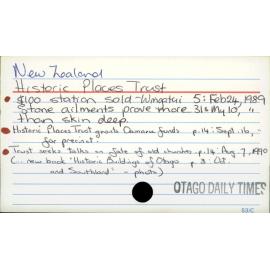 New Zealand
Historic Places Trust
$100 station sold - Wingatui 5: Feb 24, 1989
Stone ailments prove more 31: My 10, "
than skin deep.
Historic Places Trust grants Oamaru funds p.14: Sept. 16, "
for precinct.
Trust seeks talks on fate of old churches p.14: Aug 7, 1990
(... new book 'Historic Buildings of Otago p 3: Oct.
and Southland' - photo)
OTAGO DAILY TIMES